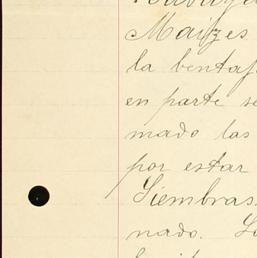 Maizes
la bentaj
en parte se
mado las
por estar
Siembras
nado. L